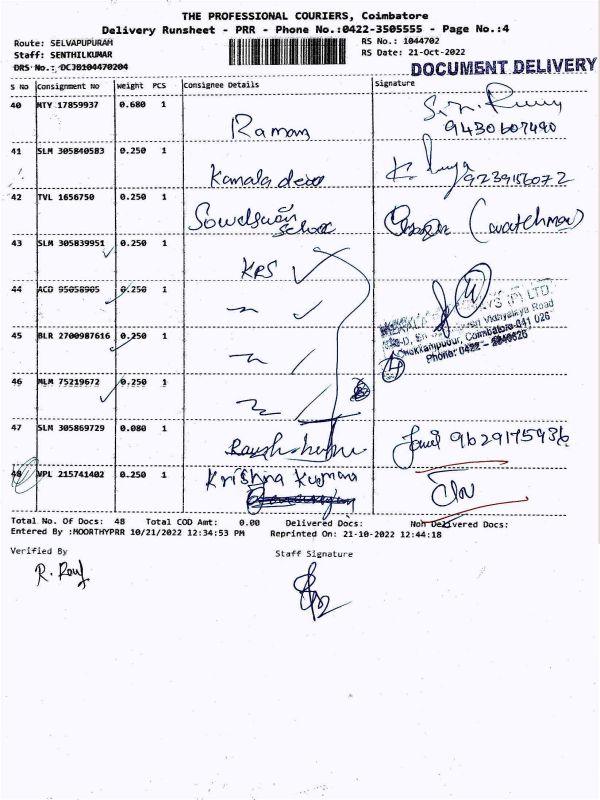 THE PROFESSIONAL COURIERS, Coimbatore
Delivery Runsheet - PRR - Phone No.:0422-3505555 - Page No.:4
Route: SELVAPUPURAM
Staff: SENTHILKUMAR
DRS No.: DCJB104470204
RS No.: 1044702
RS Date: 21-Oct-2022
DOCUMENT DELIVERY
S No Consignment No Weight PCS Consignee Details Signature
40 MTY 17859937 0.680 1 Raman
9430607490
41 SLM 305840583 0.250 1 Kamala
9239156072
42 TVL 1656750 0.250 1 (watchman)
43 SLM 305839951 0.250 1 KRS
44 ACD 95058905 0.250 1
4
(P) LTD.
Vidhyalaya Road
Coimbatore-641 026
Phone: 0422 -
4
45 BLR 2700987616 0.250 1
46 MLM 75219672 0.250 1
47 SLM 305869729 0.080 1
9629175936
48 VPL 215741402 0.250 1 Krishna Kumar
Total No. Of Docs: 48 Total COD Amt: 0.00 Delivered Docs: Non Delivered Docs:
Entered By :MOORTHYPRR 10/21/2022 12:34:53 PM Reprinted On: 21-10-2022 12:44:18
Verified By Staff Signature